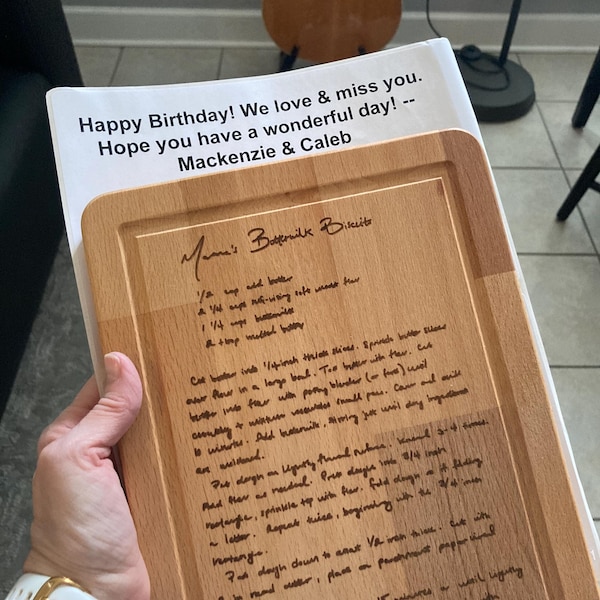 Happy Birthday! We love & miss you.
Hope you have a wonderful day! --
Mackenzie & Caleb
Mama's Buttermilk Biscuits
1/2 cup cold butter
2 1/4 cups self-rising soft wheat flour
1 1/4 cups buttermilk
2 tbsp melted butter
Cut butter into 1/4 inch thick slices. Sprinkle butter slices
over flour in a large bowl. Toss butter with flour. Cut
butter into flour with pastry blender (or fork) until
crumbly & mixture resembles small peas. Cover and chill
10 minutes. Add buttermilk, stirring just until dry ingredients
are moistened.
Put dough on lightly floured surface. Knead 3-4 times.
Add flour as needed. Press dough into 3/4 inch
rectangle, sprinkle top with flour. Fold dough
a letter. Repeat twice, beginning with the 3/4 inch
rectangle.
Pat dough down to about 1/2 inch thick. Cut with
2 in round cutter, place on parchment paper lined
15 minutes, or until lightly